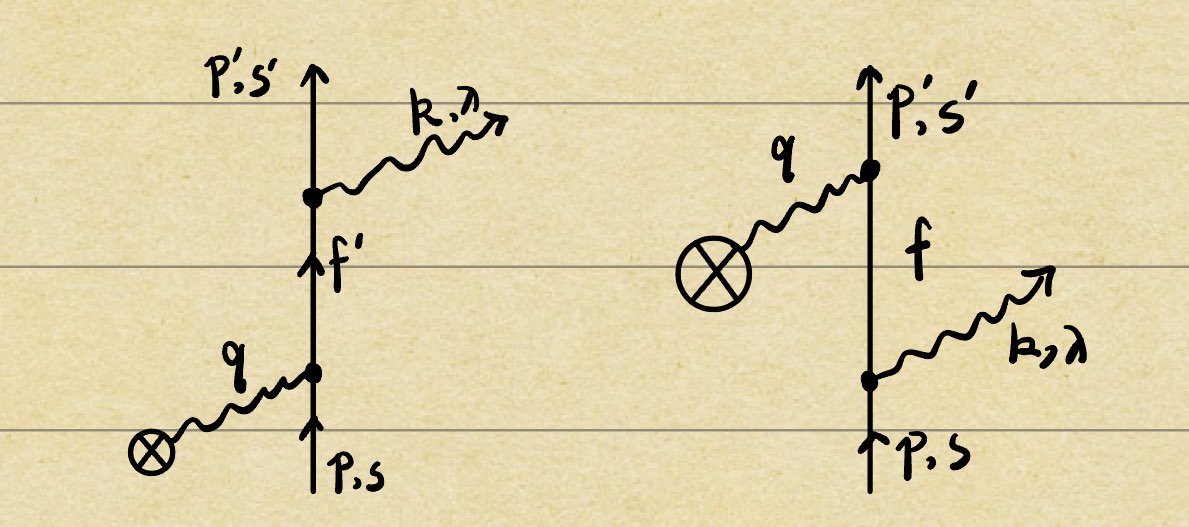 p',s'
k,λ
f'
q
p,s
p',s'
q
f
k,λ
p,s